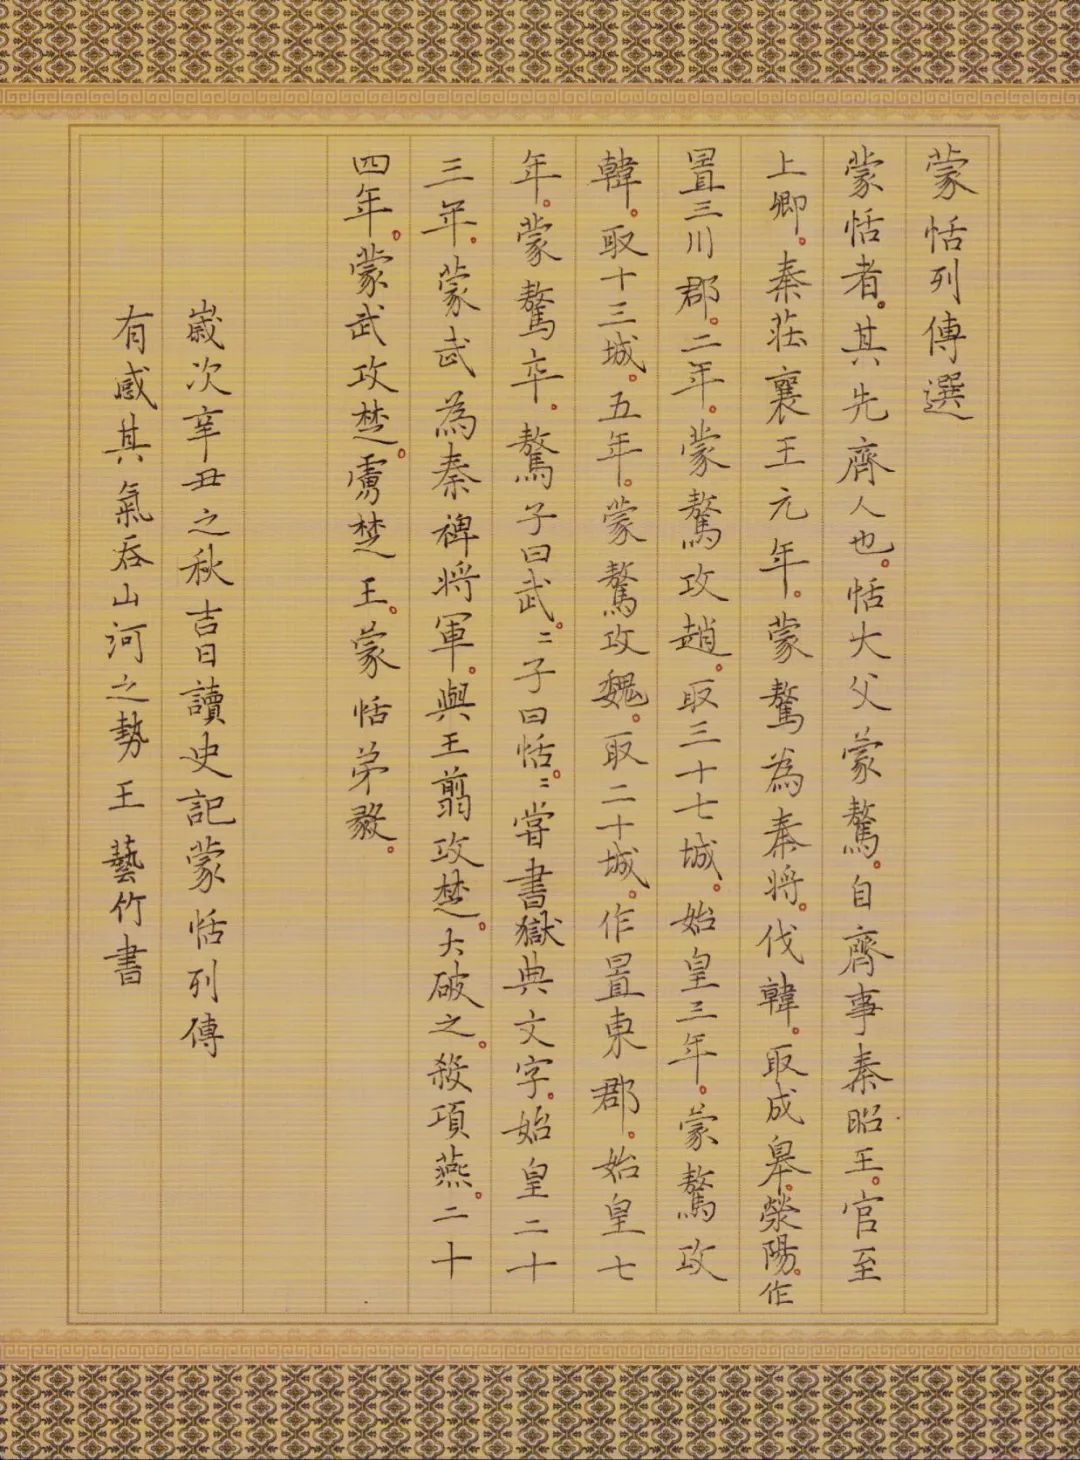 蒙恬列傳選
蒙恬者。其先齊人也。恬大父蒙驁。自齊事秦昭王。官至
上卿。秦莊襄王元年。蒙驁為秦將。伐韓。取成皋。滎陽。作
置三川郡。二年。蒙驁攻趙。取三十七城。始皇三年。蒙驁攻
韓。取十三城。五年。蒙驁攻魏。取二十城。作置東郡。始皇七
年。蒙驁卒。驁子曰武。〻子曰恬。〻嘗書獄典文字。始皇二十
三年。蒙武為秦裨將軍。與王翦攻楚。大破之。殺項燕。二十
四年。蒙武攻楚。虜楚王。蒙恬弟毅。
歲次辛丑之秋吉日讀史記蒙恬列傳
有感其氣吞山河之勢王藝竹書